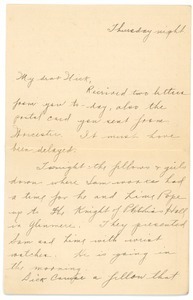 Thursday night.
My dear
Received two letters
from you to-day, also the
postal card you sent from
Worcester. It must have
been delayed.
Tonight the fellows & girls
down where Sam works had
a time for he and
up to the Knight of Pythias Hall
in Glenmere. They presented
Sam and with wrist
watches. He is going in
the morning.
Dick a fellow that